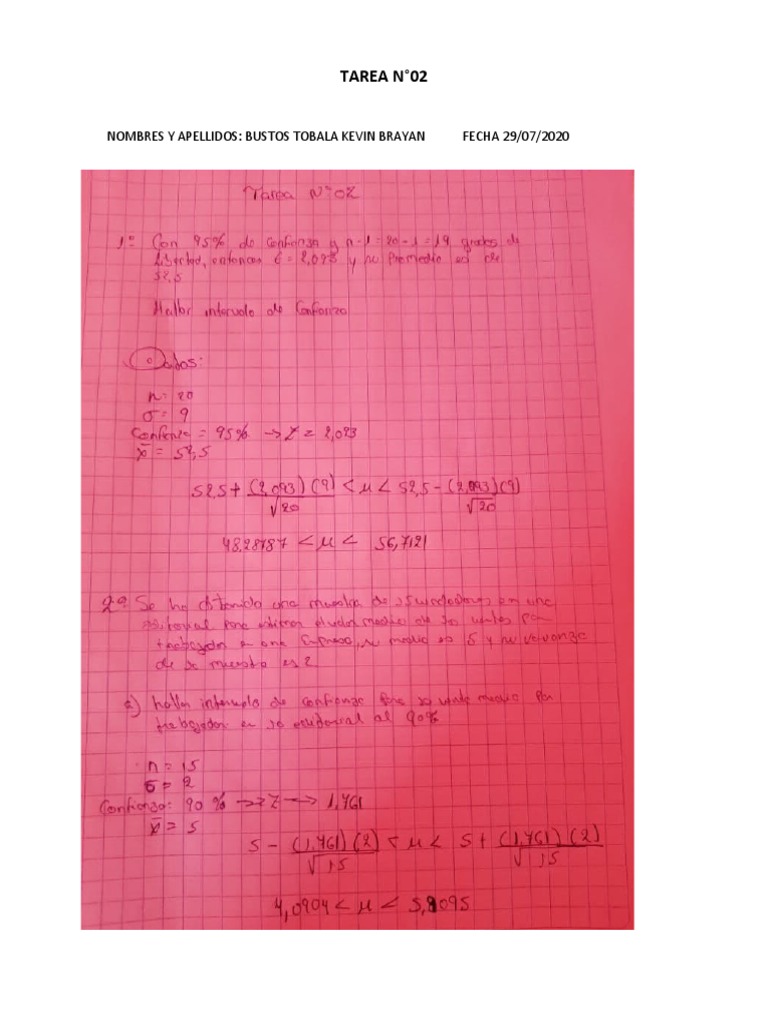 TAREA N°02
NOMBRES Y APELLIDOS: BUSTOS TOBALA KEVIN BRAYAN FECHA 29/07/2020
Tarea N°02
1° Con 95% de confianza y n-1 = 20-1 = 19 grados de
libertad, entonces t = 2,093 y su promedio es de
52,5
Hallar intervalo de Confianza
Datos:
n = 20
σ = 9
Confianza = 95% → Z = 2,093
x̄ = 52,5
52,5 + (2,093)(9)/√20 < μ < 52,5 - (2,093)(9)/√20
48,28787 < μ < 56,7121
2° Se ha obtenido una muestra de 15 vendedores en una
para estimar el valor medio de ventas por
trabajador en una Empresa, su media es 5 y su
de muestra es 2
a) hallar intervalo de confianza para venta medio por
trabajador en al 90%
n = 15
σ = 2
Confianza: 90% → Z → 1,761
x̄ = 5
5 - (1,761)(2)/√15 < μ < 5 + (1,761)(2)/√15
4,0904 < μ < 5,9095